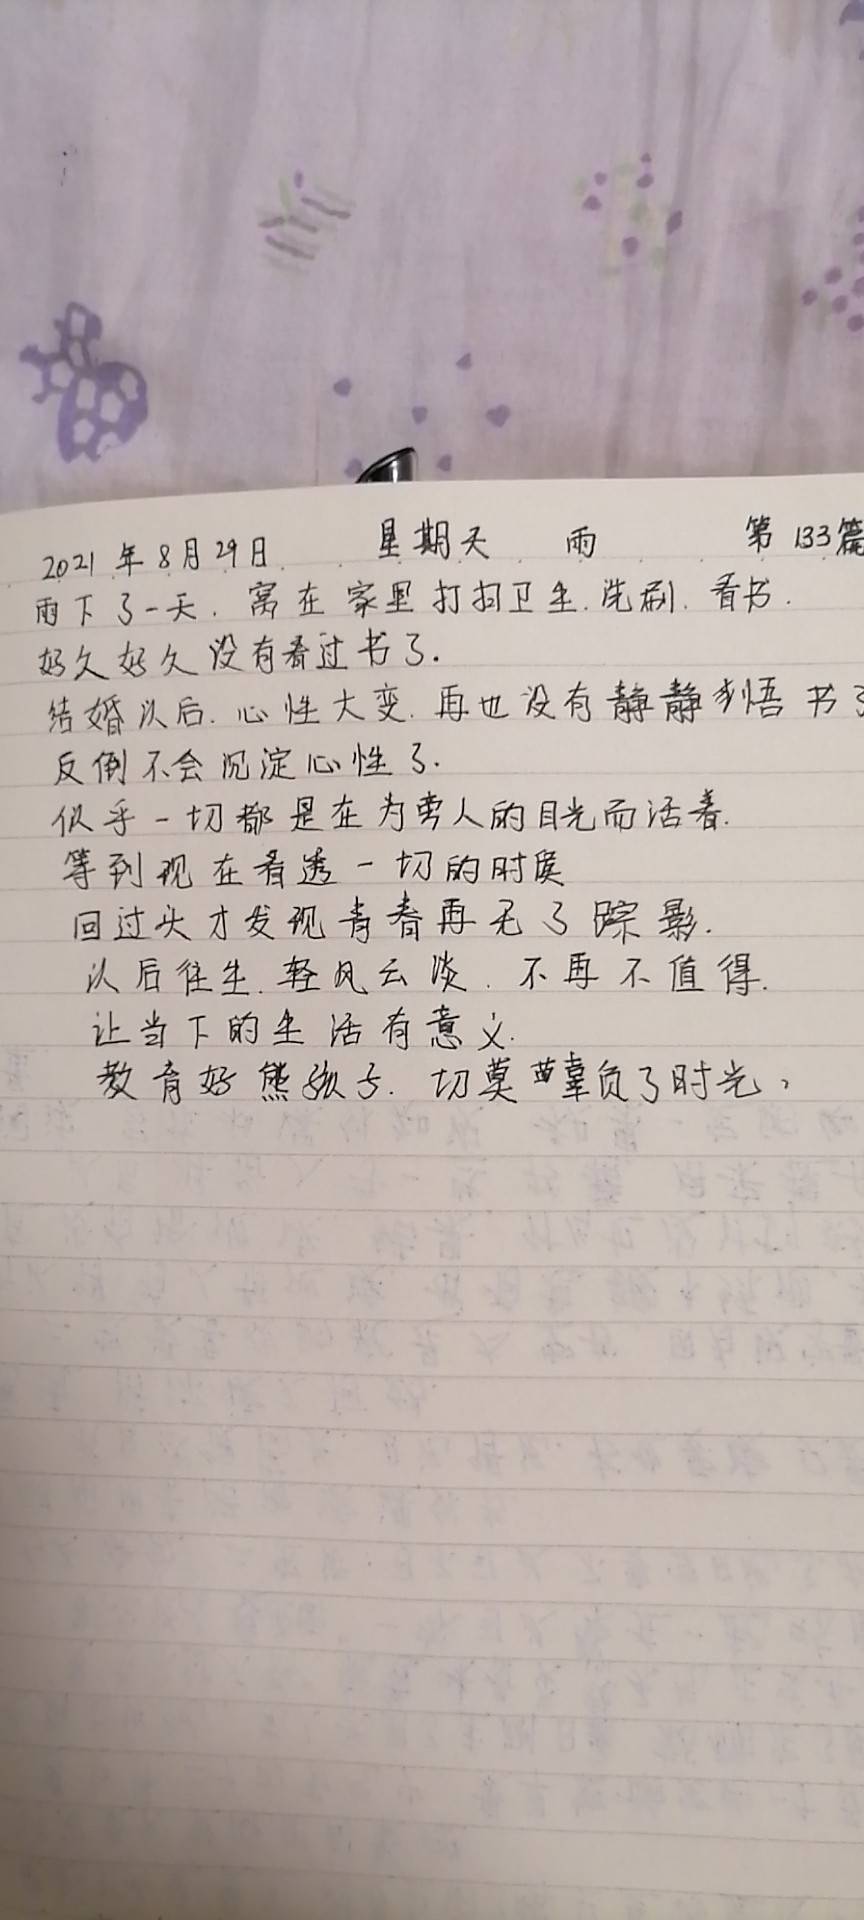 2021年8月29日 星期天 雨 第133篇
雨下了一天.窝在家里打扫卫生.洗刷.看书.
好久好久没有看过书了.
结婚以后.心性大变.再也没有静静感悟书了
反倒不会沉淀心性了.
似乎一切都是在为旁人的目光而活着.
等到现在看透一切的时候
回过头才发现青春再无了踪影.
以后往生.轻风云淡.不再不值得.
让当下的生活有意义.
教育好熊孩子.切莫辜负了时光,